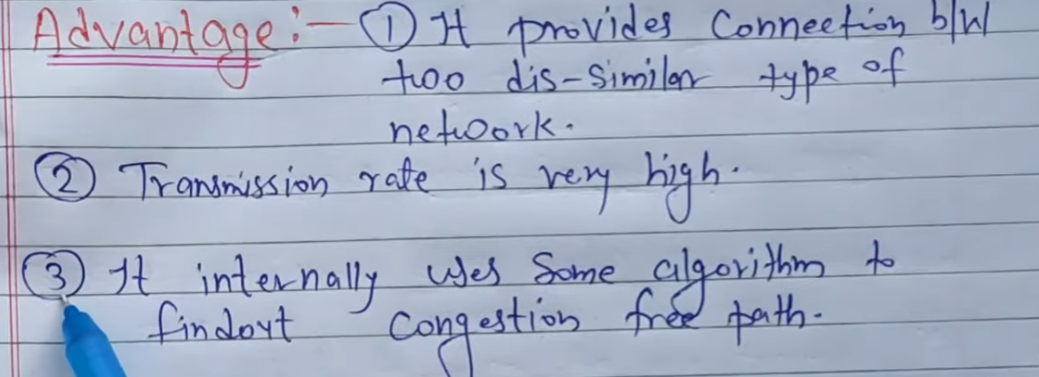 Advantage:- ① It provides Connection b/w
two dis-similar type of
network.
② Transmission rate is very high.
③ It internally uses Some algorithm to
findout congestion free path.